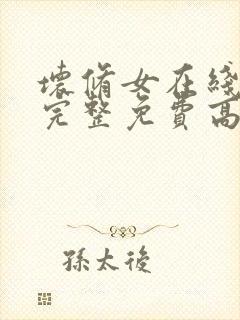 壞脩女在綫
完整免費高
孫太後